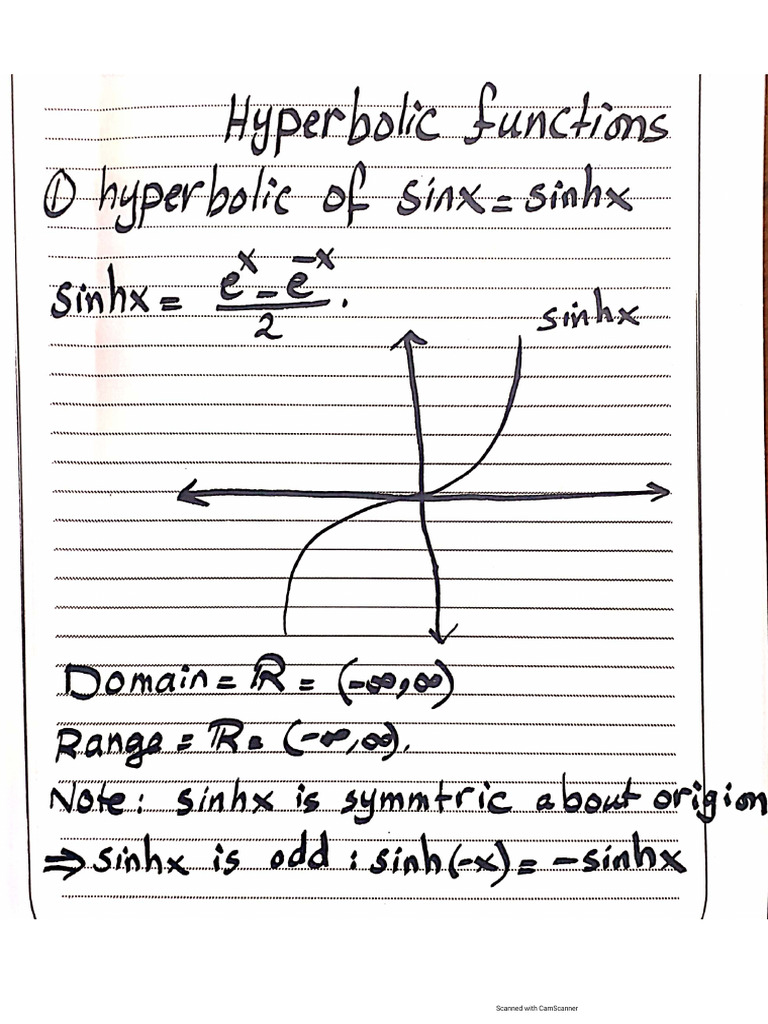 Hyperbolic functions
① hyperbolic of sinx = sinhx
sinhx = (e^x - e^-x)/2 .
sinhx
Domain = ℝ = (-∞,∞)
Range = ℝ = (-∞,∞).
Note: sinhx is symmtric about origion
⇒ sinhx is odd : sinh(-x) = -sinhx
Scanned with CamScanner